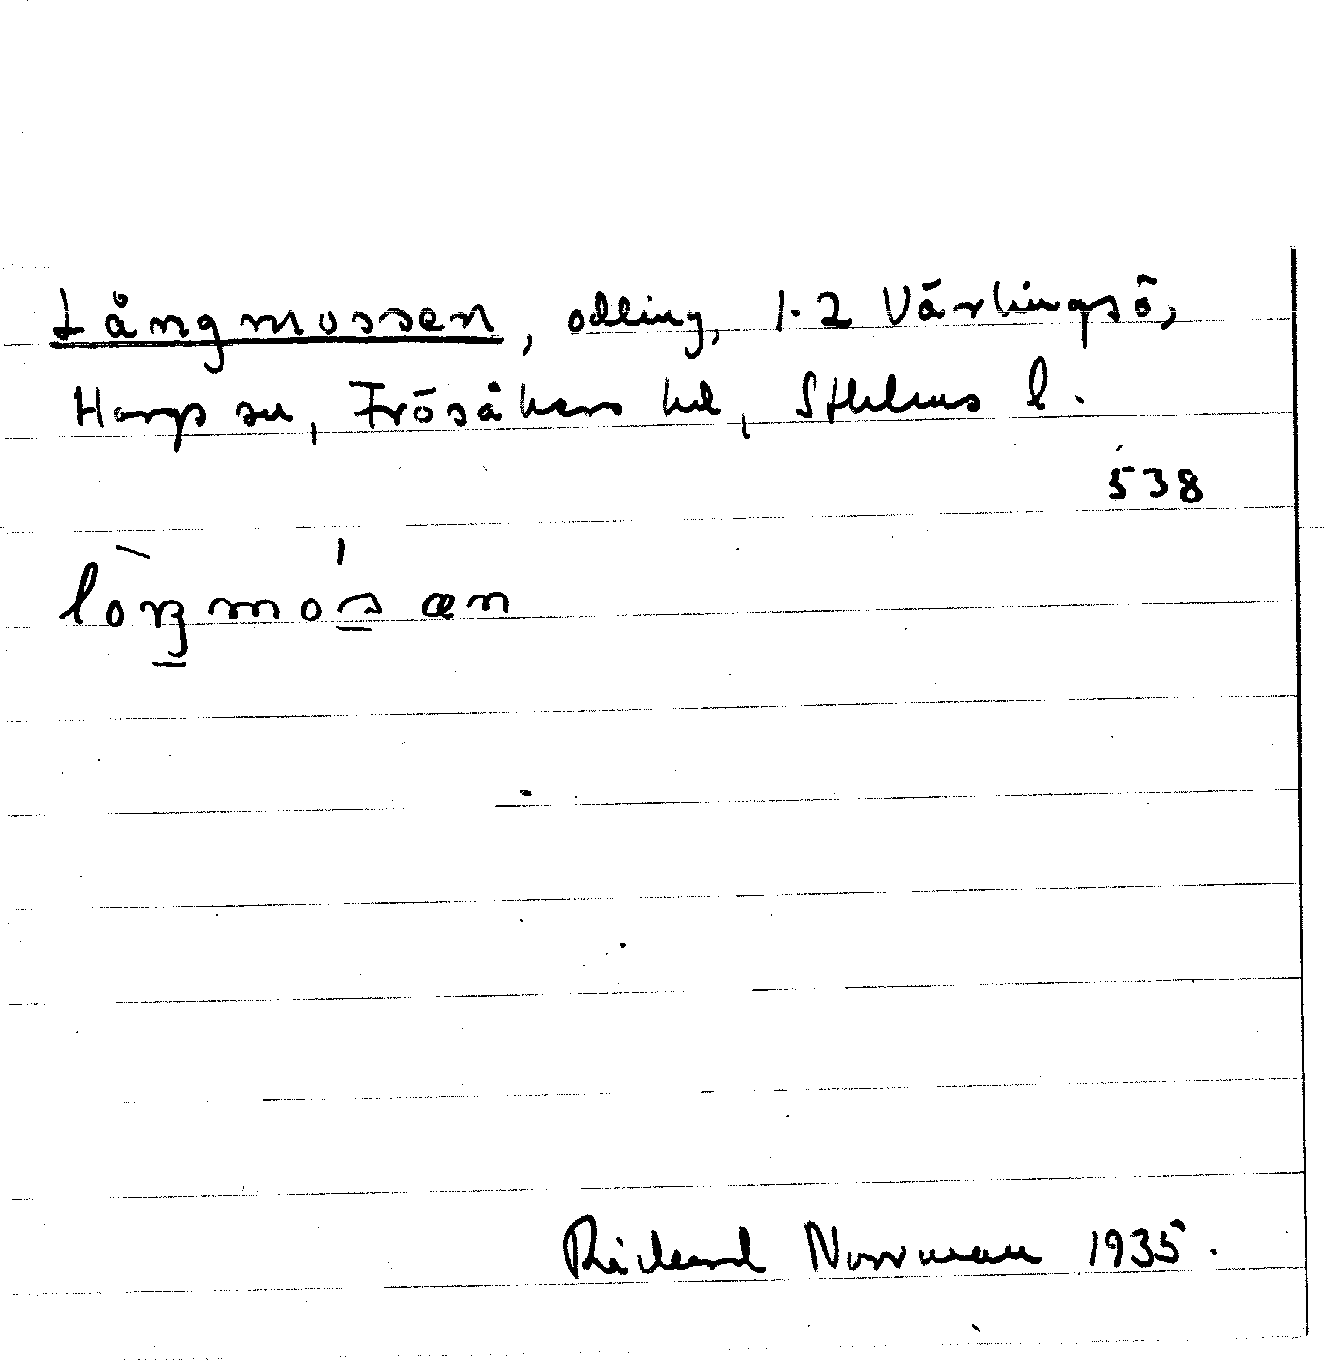 Långmossen, odling, 1-2 Värlingsö,
Hargs sn, Frösåkers hd, Sthlms l.
538
lòŋmósan
Rickard Norrman 1935.